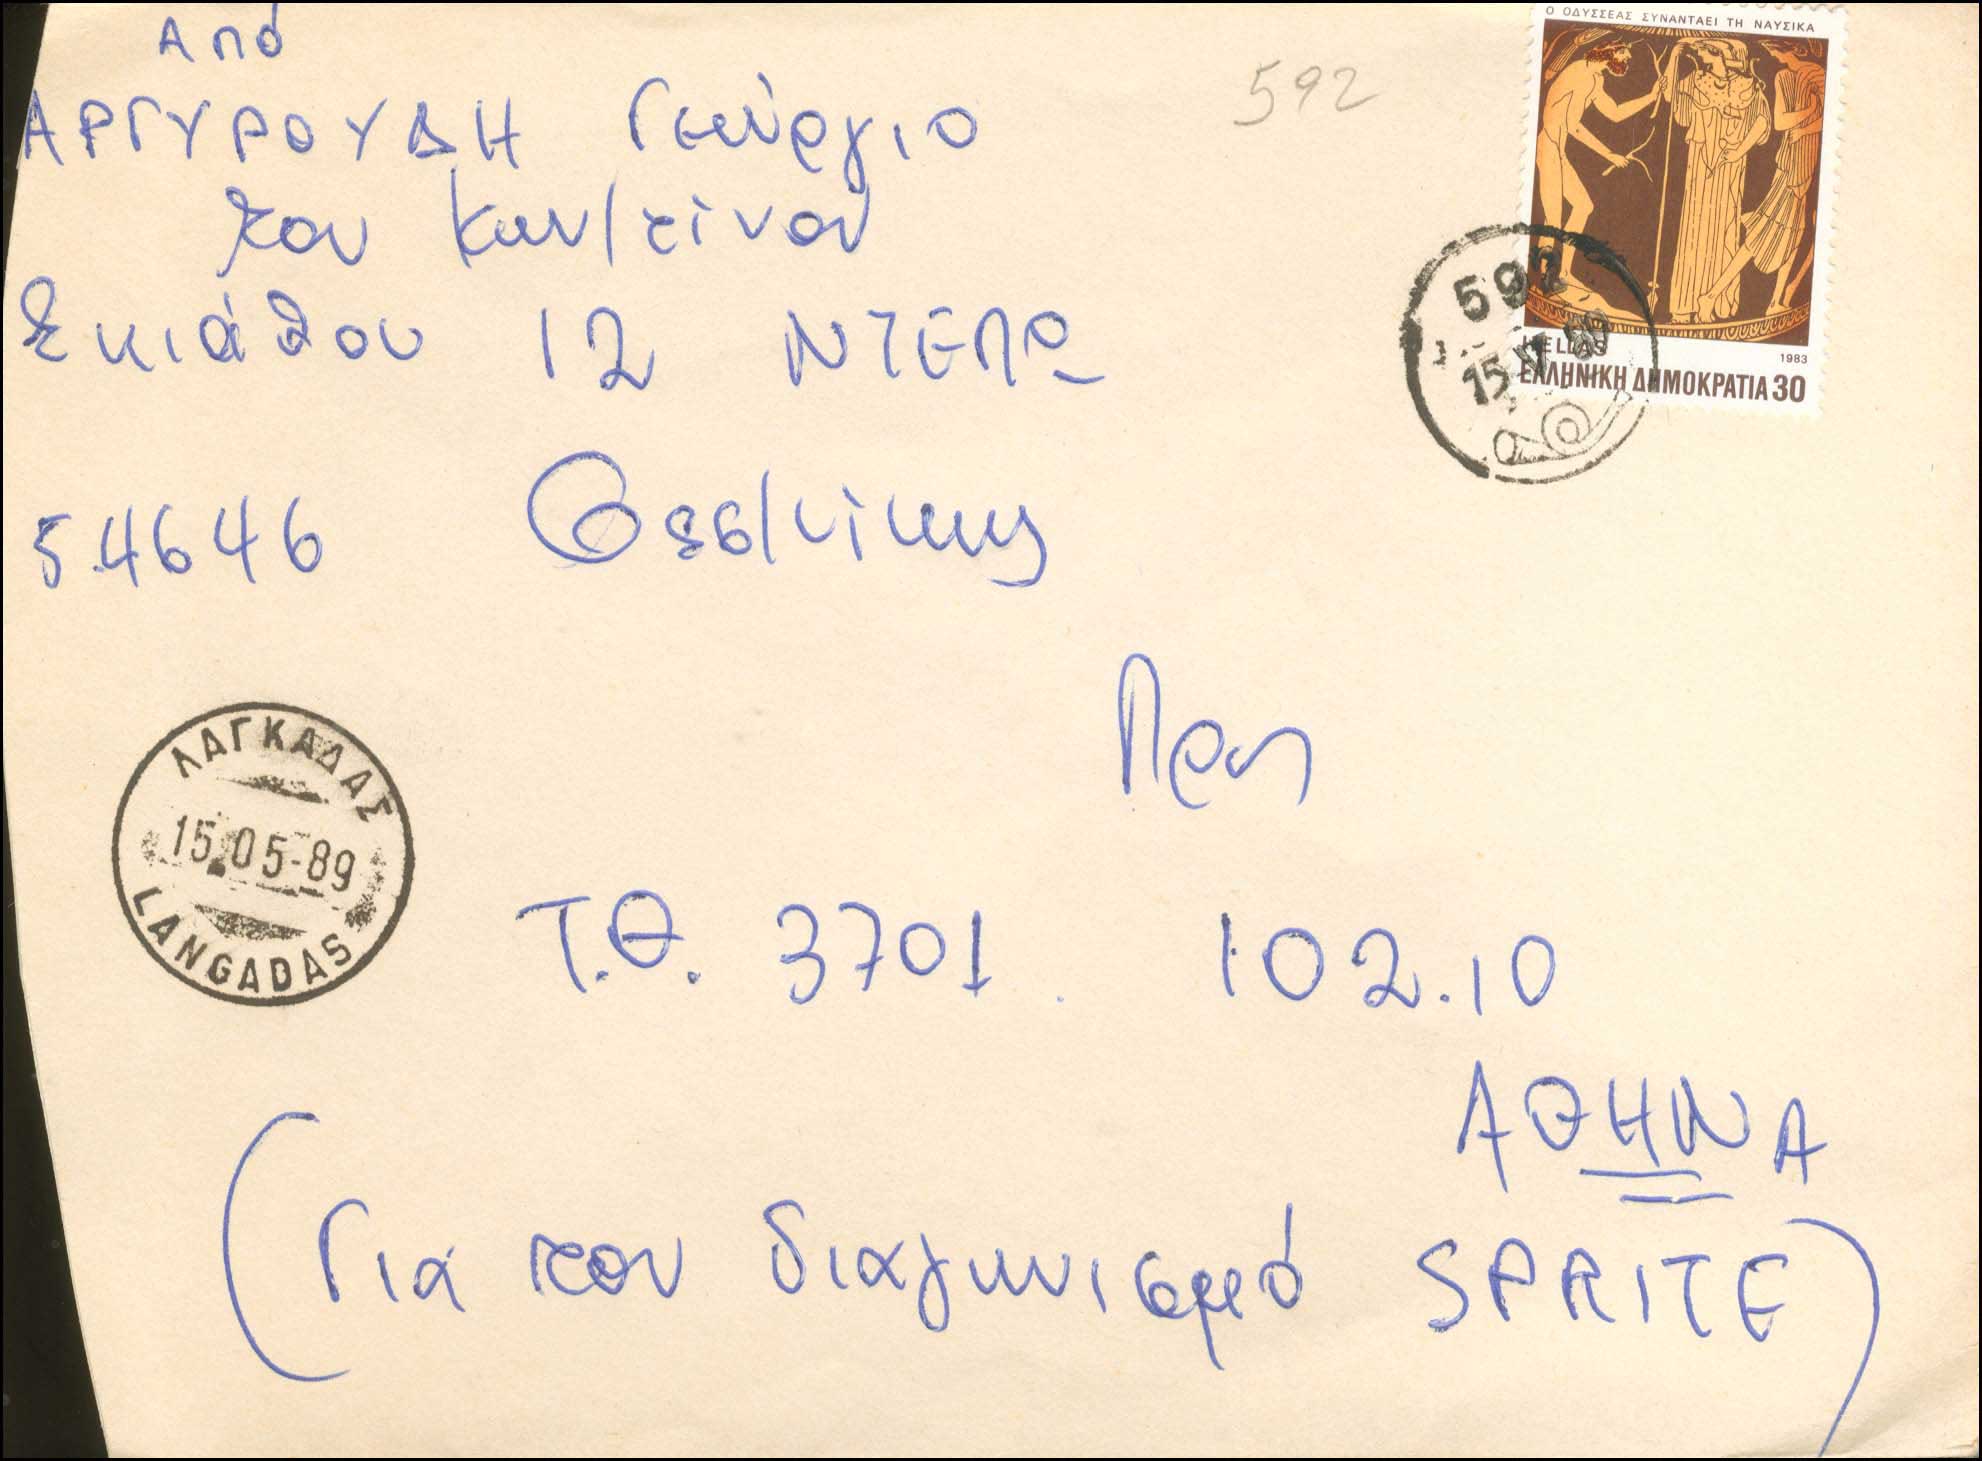 Από
ΑΡΓΥΡΟΥΔΗ Γεώργιο
του Κων/τίνου
Σκιάθου 12 ΝΤΕΠΩ
54646 Θεσ/νίκης
592
Ο ΟΔΥΣΣΕΑΣ ΣΥΝΑΝΤΑΕΙ ΤΗ ΝΑΥΣΙΚΑ
HELLAS 1983
ΕΛΛΗΝΙΚΗ ΔΗΜΟΚΡΑΤΙΑ 30
592
15 V 89
ΛΑΓΚΑΔΑΣ
15.05-89
LANGADAS
Προς
Τ.Θ. 3701 102.10
ΑΘΗΝΑ
(Για τον διαγωνισμό SPRITE)